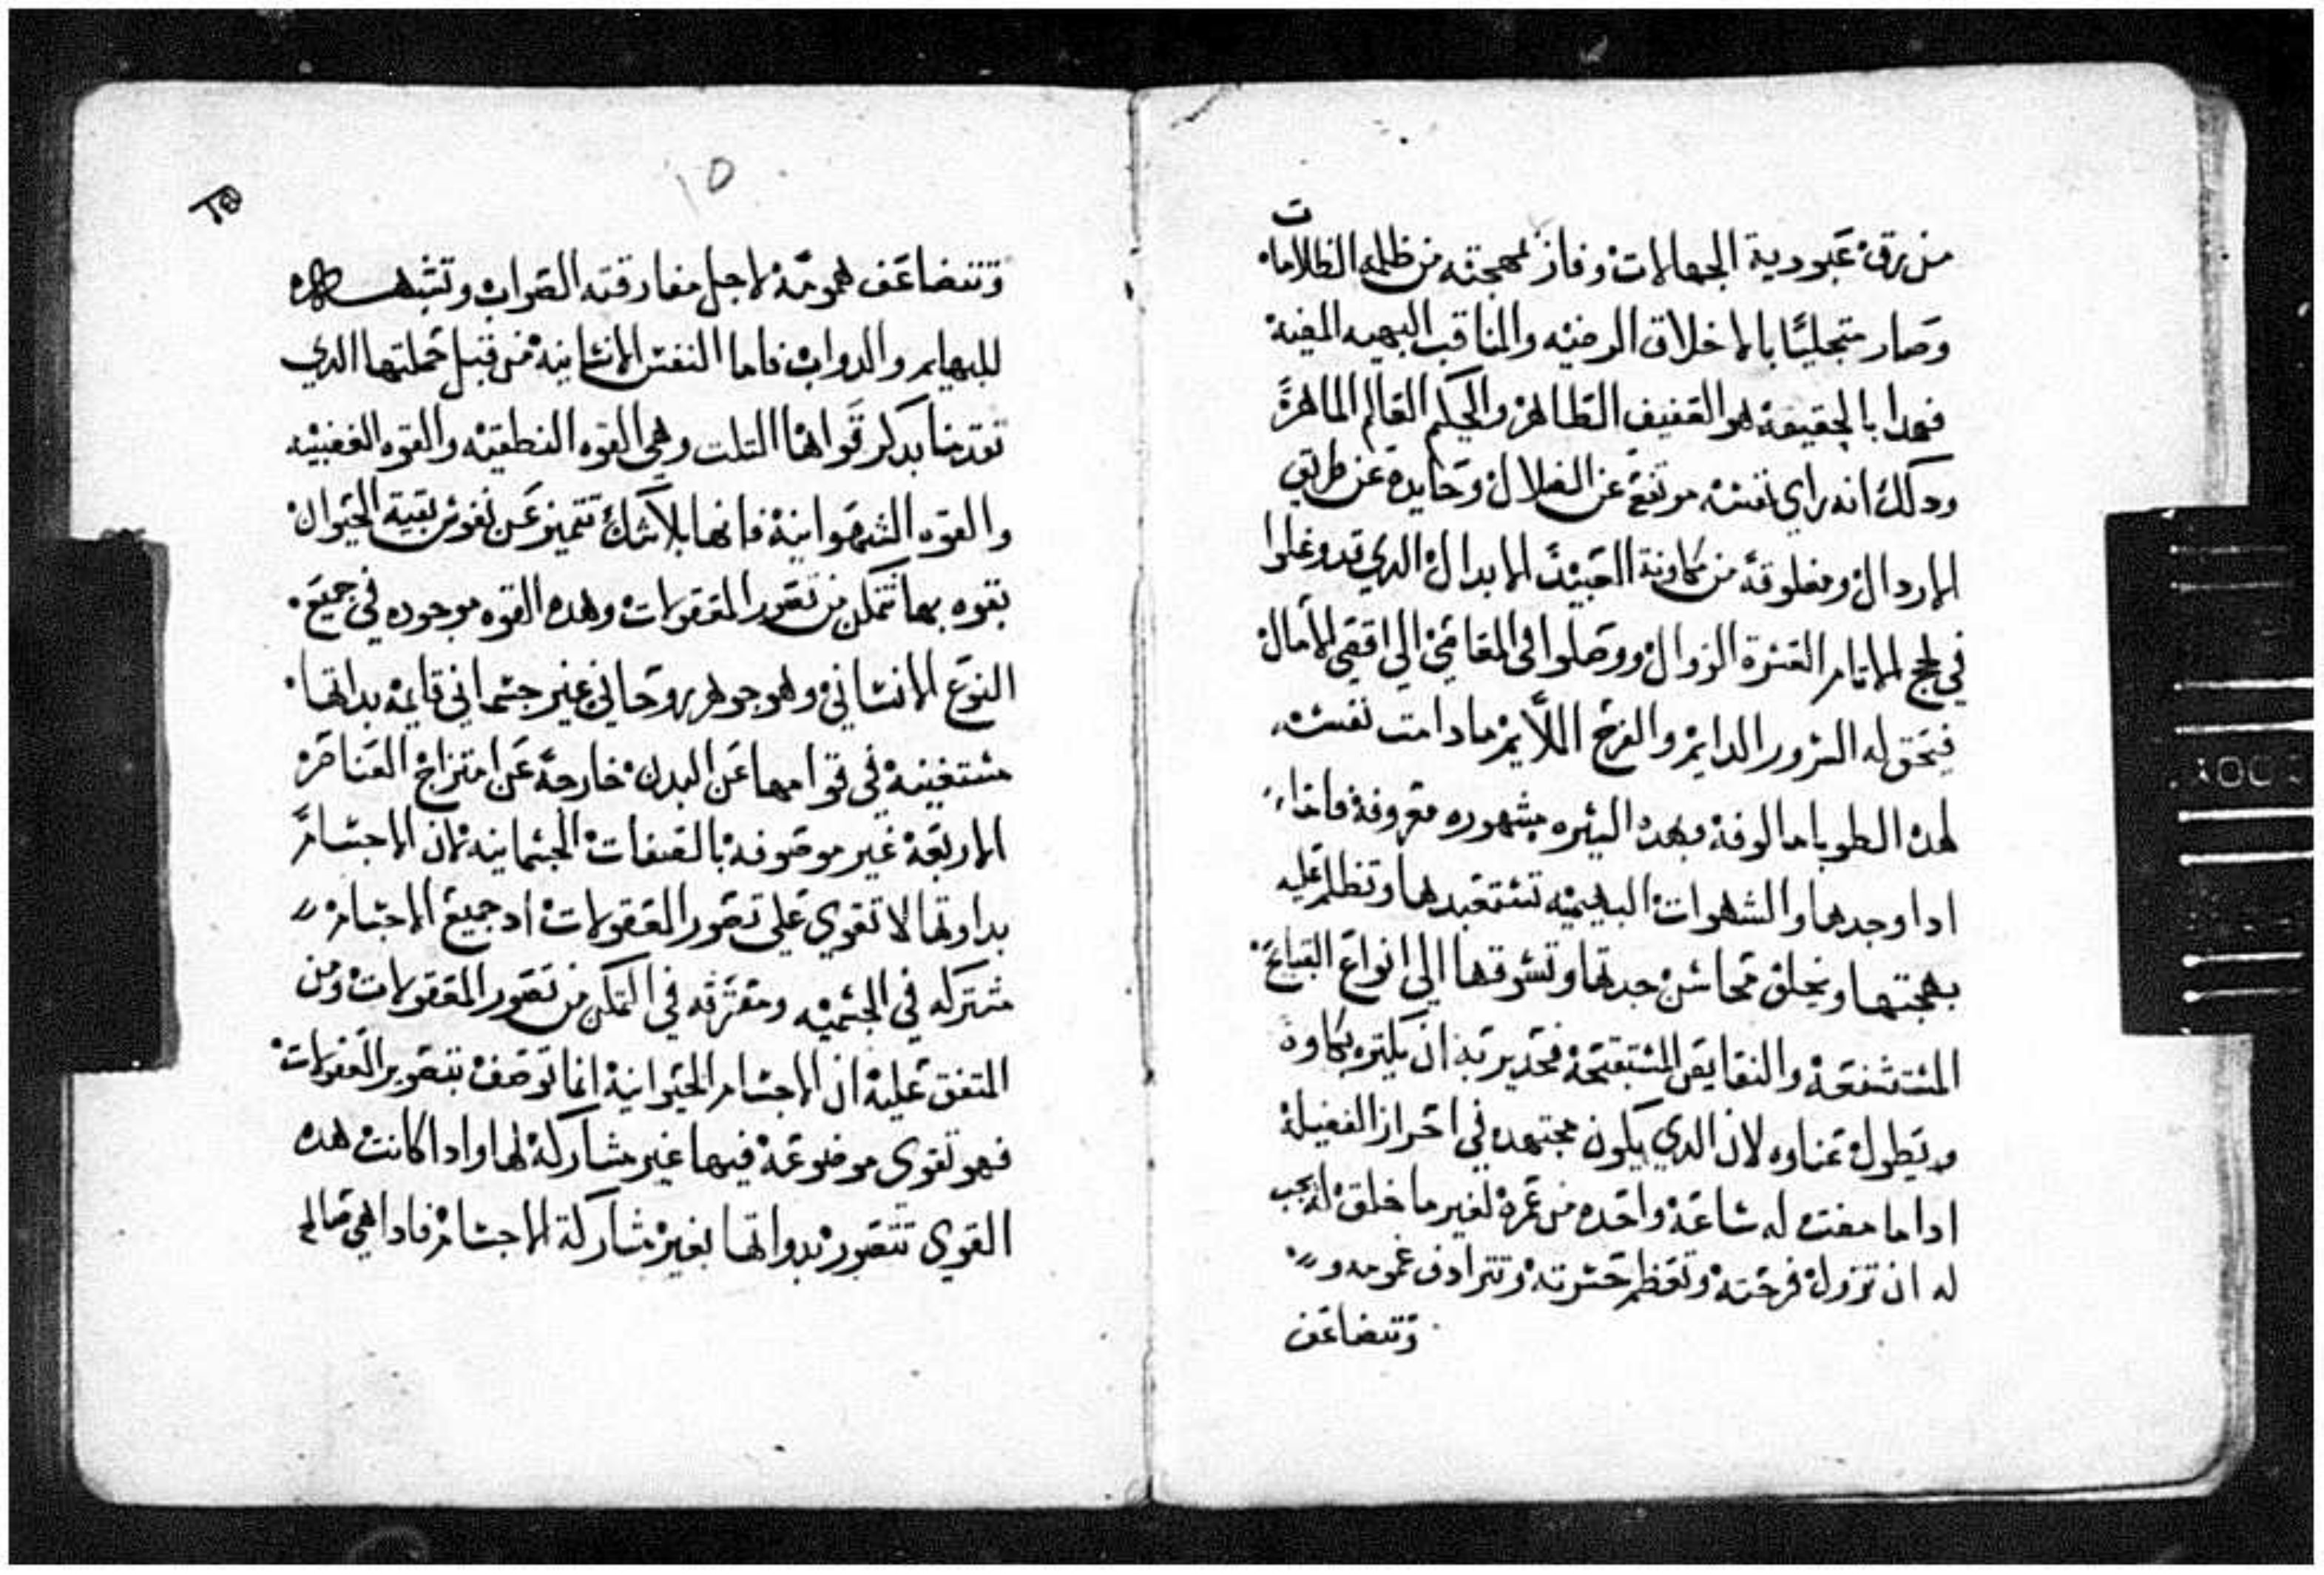 من رق عبودية الجهالات وفاز بمهجته من ظلمه الظلامات
وصار متجليًا بالاخلاق الرضيه والمناقب البهيه المضيه
فهدا بالحقيقة هو العفيف الطاهر والحكيم العالم الماهر
ودلك انه راي نفسه مرتفع عن الضلال وحايدة عن طريق
الاردال ومعلوقة من العبيد الابدال الدي قد وغلوا
في لجج الاتام العسرة الزوال ووصلوا في المعاصي الي اقصي الامال
فيحق له السرور الدايم والفرح اللايم مادامت نفسه
لهده الطوبا مالوفة وبهده السيره مشهوره معروفة فاما
ادا وجدها والشهوات البهيميه تستعبدها وتظلم عليه
بهجتها ويخلق محاسن جدتها وتسوقها الي انواع القبايح
المستشنعة والنقايص المستقبحة فجدير به ان يكتر بكاوه
ويطول عناوه لان الدي يكون مجتهده في احراز الفضيلة
ادا ما مضت له ساعة واحده من عمره لغير ما خلق له يجب
له ان تزول فرحته وتعظم حسرته وتترادف غمومه و
وتتضاعف
١٥
وتتضاعف همومه لاجل مفارقته الصواب وتشبهه
للبهايم والدواب فاما النفس الانسانية من قبل جملتها الدي
تقدمنا بدكر قواها التلت وهي القوه النطقيه والقوه الغضبيه
والقوه الشهوانية فانها بلا شك تتميز عن نفوس بقية الحيوان
بقوه بها تتمكن من تصور المعقولات وهده القوه موجوده في جميع
النوع الانساني وهو جوهر روحاني غير جسماني قايمه بداتها
مستغنية في قوامها عن البدن خارجة عن امتزاج العناصر
الاربعة غير موصوفة بالصفات الجسمانية لان الاجسام
بداوتها لا تقوي علي تصور المعقولات اد جميع الاجسام
مشتركه في الجسميه ومفترقه في التمكن من تصور المعقولات ومن
المتفق علية ان الاجسام الحيوانية انما توصف بتصوير المعقولات
فهو لقوي موضوعة فيها غير مشاركة لها وادا كانت هده
القوي تتصور بدواتها بغير مشاركة الاجسام فادا هي عالم